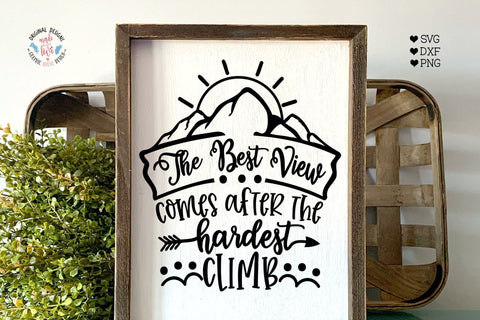 ORIGINAL DESIGNS
made with love
SVG
DXF
PNG
The Best View
comes after the
hardest
CLIMB